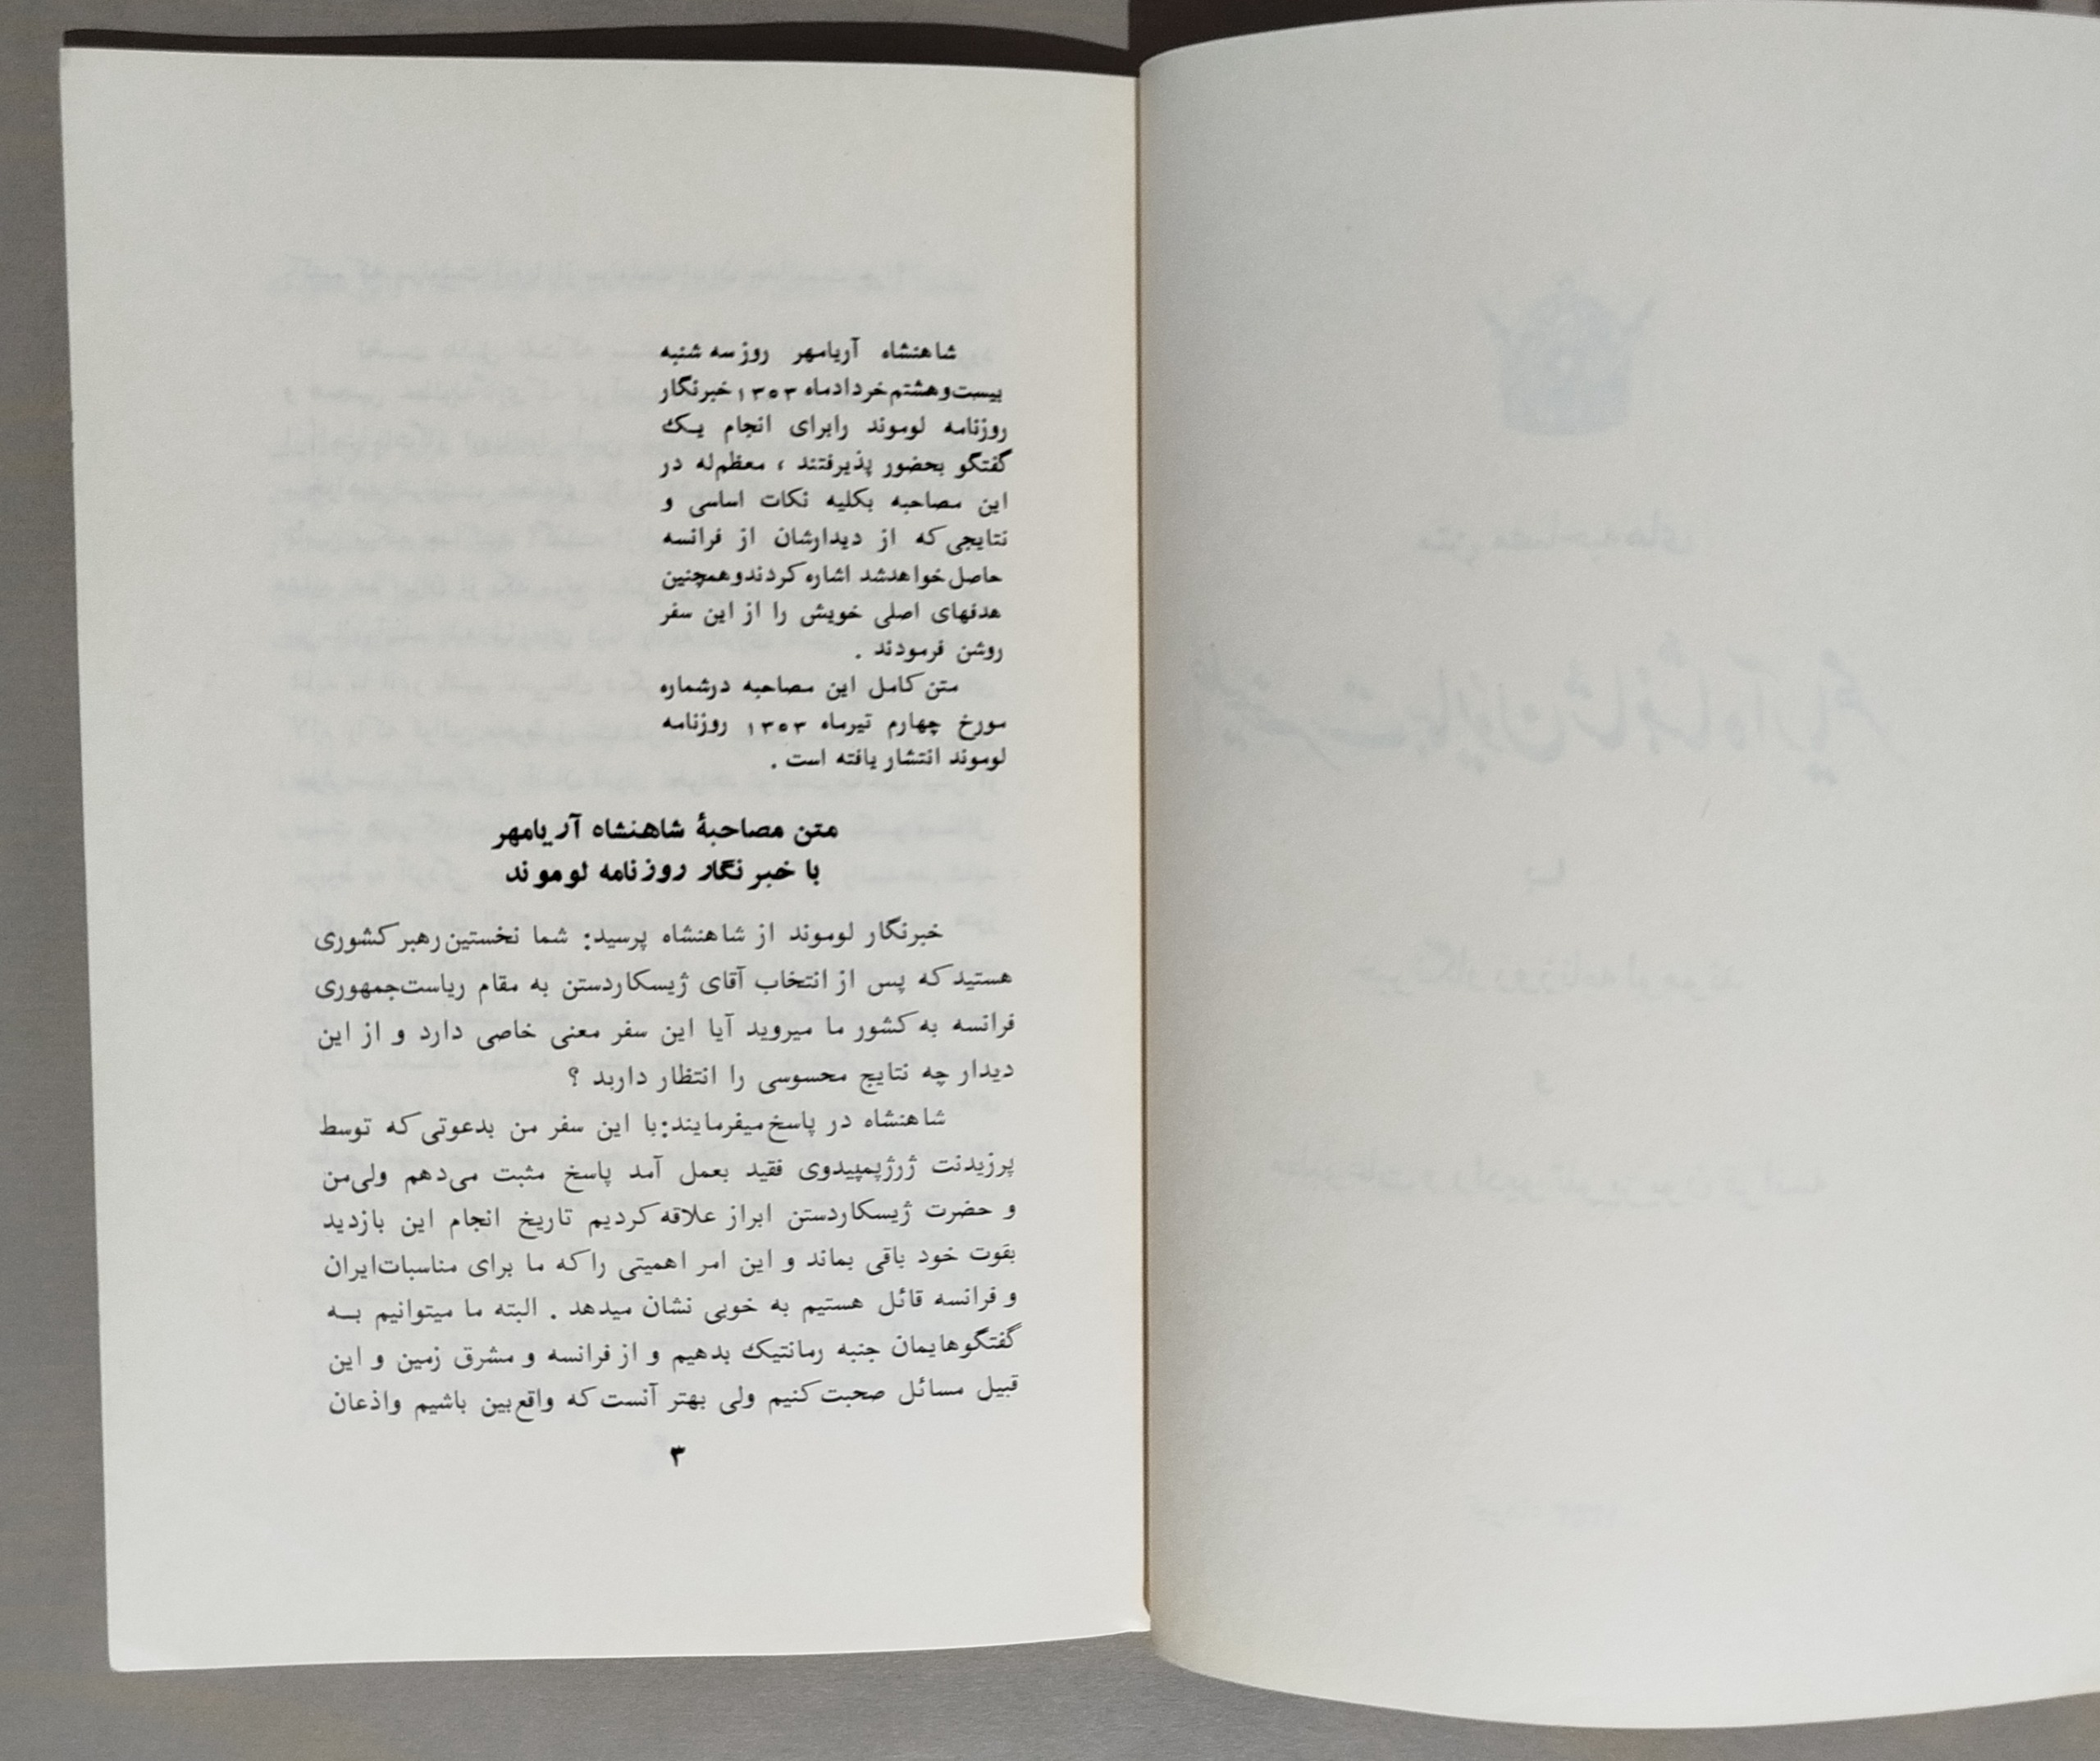 شاهنشاه آریامهر روز سه شنبه
بیست و هشتم خردادماه ۱۳۵۳ خبرنگار
روزنامه لوموند رابرای انجام یک
گفتگو بحضور پذیرفتند ، معظم‌له در
این مصاحبه بکلیه نکات اساسی و
نتایجی که از دیدارشان از فرانسه
حاصل خواهدشد اشاره کردندوهمچنین
هدفهای اصلی خویش را از این سفر
روشن فرمودند .
متن کامل این مصاحبه درشماره
مورخ چهارم تیرماه ۱۳۵۳ روزنامه
لوموند انتشار یافته است .
متن مصاحبهٔ شاهنشاه آریامهر
با خبرنگار روزنامه لوموند
خبرنگار لوموند از شاهنشاه پرسید: شما نخستین رهبر کشوری
هستید که پس از انتخاب آقای ژیسکاردستن به مقام ریاست‌جمهوری
فرانسه به کشور ما میروید آیا این سفر معنی خاصی دارد و از این
دیدار چه نتایج محسوسی را انتظار دارید ؟
شاهنشاه در پاسخ میفرمایند:با این سفر من بدعوتی که توسط
پرزیدنت ژرژپمپیدوی فقید بعمل آمد پاسخ مثبت می‌دهم ولی‌من
و حضرت ژیسکاردستن ابراز علاقه کردیم تاریخ انجام این بازدید
بقوت خود باقی بماند و این امر اهمیتی را که ما برای مناسبات‌ایران
و فرانسه قائل هستیم به خوبی نشان میدهد . البته ما میتوانیم بــه
گفتگوهایمان جنبه رمانتیک بدهیم و از فرانسه و مشرق زمین و این
قبیل مسائل صحبت کنیم ولی بهتر آنست که واقع‌بین باشیم واذعان
۳